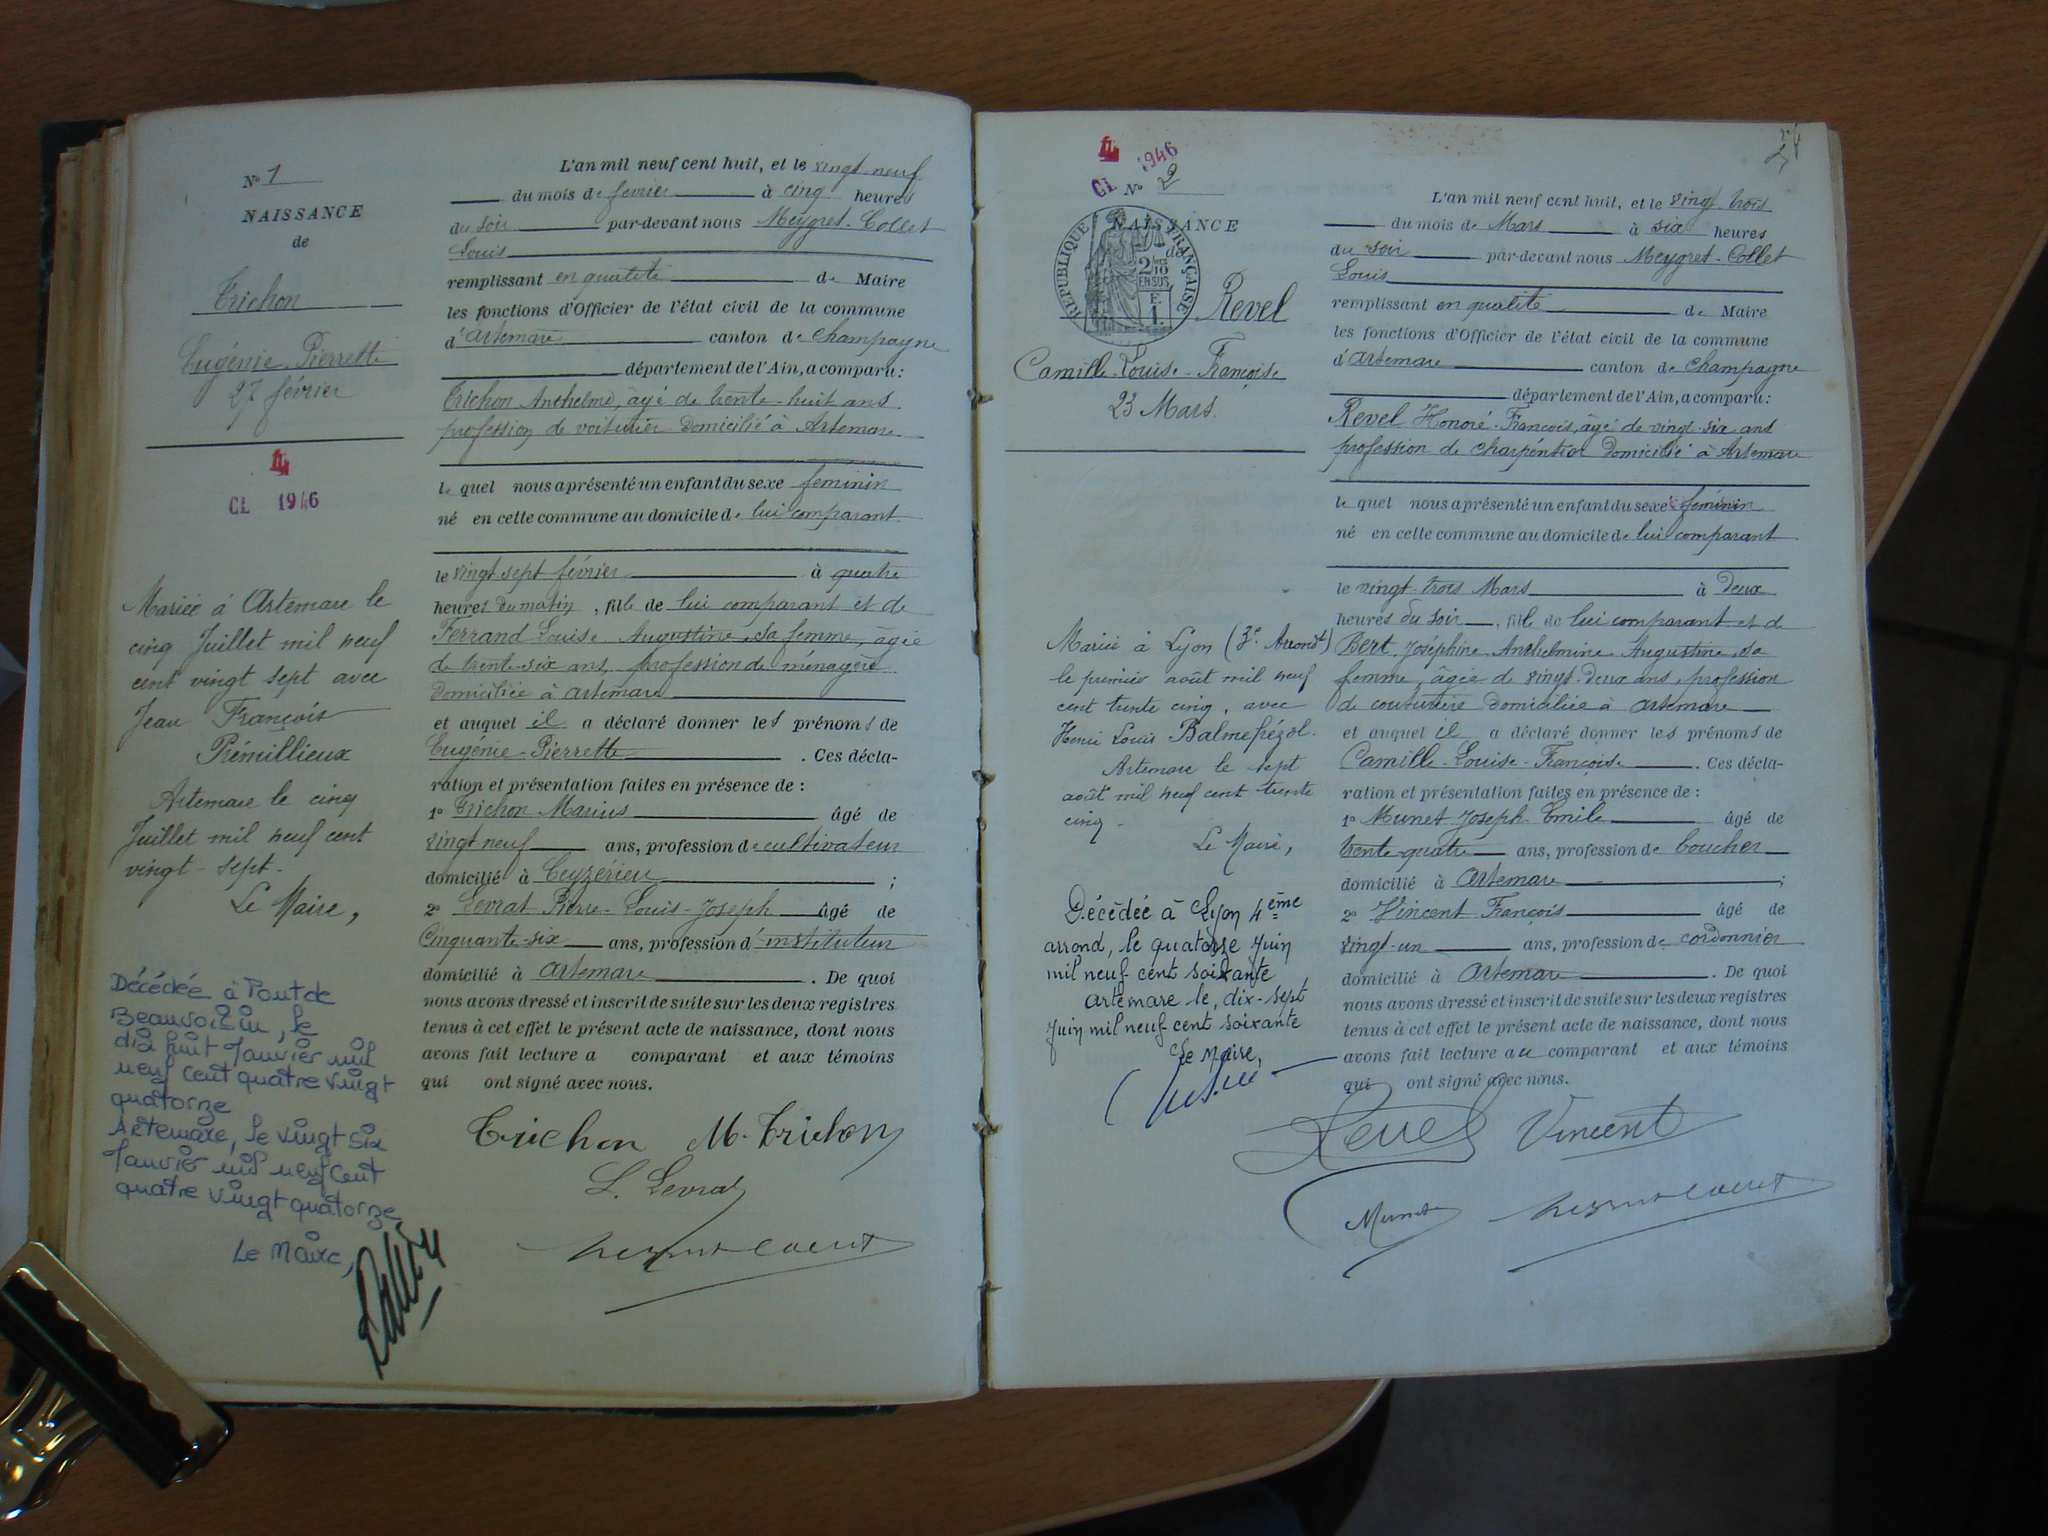 N° 1
NAISSANCE
de
Trichon
Eugénie-Pierrette
27 février
CL 1946
Mariée à Artemare le
cinq Juillet mil neuf
cent vingt sept avec
Jean François
Prémillieux
Artemare le cinq
Juillet mil neuf cent
vingt-sept.
Le Maire,
Décédée à Pont de
Beauvoisin, le
dix huit Janvier mil
neuf cent quatre vingt
quatorze
Artemare, le vingt six
Janvier mil neuf cent
quatre vingt quatorze
Le Maire,
L'an mil neuf cent huit, et le vingt-neuf
du mois de fevrier à cinq heures
du soir par-devant nous Meygret-Collet
Louis
remplissant en qualité de Maire
les fonctions d'Officier de l'état civil de la commune
d'Artemare canton de Champagne
département de l'Ain, a comparu:
Trichon Anthelme, âgé de trente-huit ans
profession de voiturier domicilié à Artemare
le quel nous a présenté un enfant du sexe féminin
né en cette commune au domicile de lui comparant
le vingt sept février à quatre
heures du matin, fille de lui comparant et de
Ferrand Louise-Augustine, sa femme, âgée
de trente-six ans, profession de ménagère
domiciliée à Artemare
et auquel il a déclaré donner les prénoms de
Eugénie-Pierrette . Ces décla-
ration et présentation faites en présence de :
1° Trichon Marius âgé de
vingt neuf ans, profession de cultivateur
domicilié à Ceyzérieu ;
2° Levrat Pierre-Louis-Joseph âgé de
Cinquante-six ans, profession d'instituteur
domicilié à Artemare . De quoi
nous avons dressé et inscrit de suite sur les deux registres
tenus à cet effet le présent acte de naissance, dont nous
avons fait lecture a comparant et aux témoins
qui ont signé avec nous.
Trichon M. Trichon
L. Levrat
CL 1946
N° 2
NAISSANCE
de
RÉPUBLIQUE FRANÇAISE
2/10
EN SUS
Revel
Camille-Louise-Françoise
23 Mars.
Mariée à Lyon (3e Arrondt)
le premier août mil neuf
cent trente cinq, avec
Henri Louis Balmefrézol.
Artemare le sept
août mil neuf cent trente
cinq.
Le Maire,
Décédée à Lyon 4ème
arrond, le quatorze Juin
mil neuf cent soixante
Artemare le, dix-sept
Juin mil neuf cent soixante
Le Maire,
L'an mil neuf cent huit, et le vingt-trois
du mois de Mars à six heures
du soir par-devant nous Meygret-Collet
Louis
remplissant en qualité de Maire
les fonctions d'Officier de l'état civil de la commune
d'Artemare canton de Champagne
département de l'Ain, a comparu:
Revel Honoré-François, âgé de vingt-six ans
profession de charpentier domicilié à Artemare
le quel nous a présenté un enfant du sexe féminin
né en cette commune au domicile de lui comparant
le vingt-trois Mars à deux
heures du soir, fille de lui comparant et de
Bert Joséphine-Anthelmine-Augustine, sa
femme, âgée de vingt-deux ans, profession
de couturière domiciliée à Artemare
et auquel il a déclaré donner les prénoms de
Camille-Louise-Françoise . Ces décla-
ration et présentation faites en présence de :
1° Munet Joseph-Emile âgé de
trente-quatre ans, profession de boucher
domicilié à Artemare ;
2° Vincent François âgé de
vingt-un ans, profession de cordonnier
domicilié à Artemare . De quoi
nous avons dressé et inscrit de suite sur les deux registres
tenus à cet effet le présent acte de naissance, dont nous
avons fait lecture au comparant et aux témoins
qui ont signé avec nous.
Revel Vincent
Munet